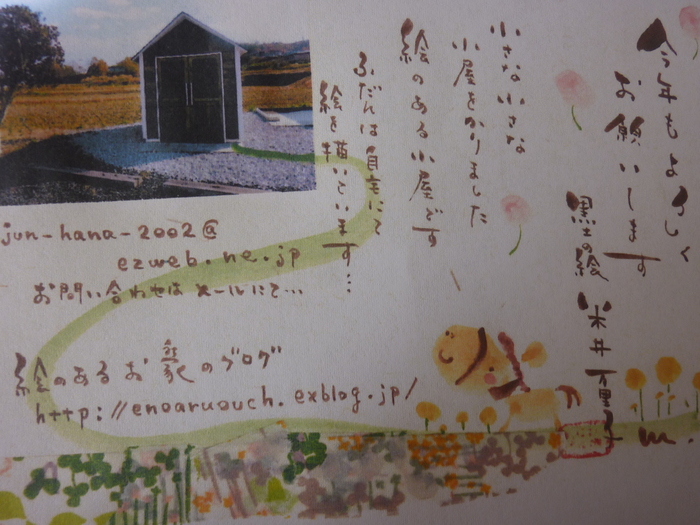 今年もよろしく
お願いします
黒土の絵 米井万里子
小さな小さな
小屋をかりました
絵のある小屋です
ふだんは自宅にて
絵を描いています…
jun-hana-2002@
ezweb.ne.jp
お問い合わせはメールにて…
絵のあるお家のブログ
http://enoaruouch.exblog.jp/